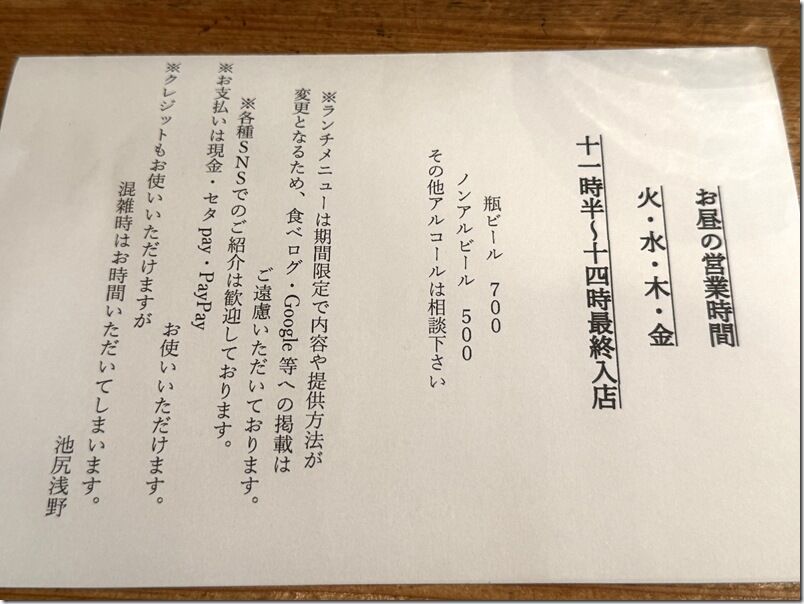 お昼の営業時間
火・水・木・金
十一時半～十四時最終入店
瓶ビール　700
ノンアルビール　500
その他アルコールは相談下さい
※ランチメニューは期間限定で内容や提供方法が
変更となるため、食べログ・Google等への掲載は
ご遠慮いただいております。
※各種SNSでのご紹介は歓迎しております。
※お支払いは現金・セタpay・PayPay
お使いいただけます。
※クレジットもお使いいただけますが
混雑時はお時間いただいてしまいます。
池尻浅野